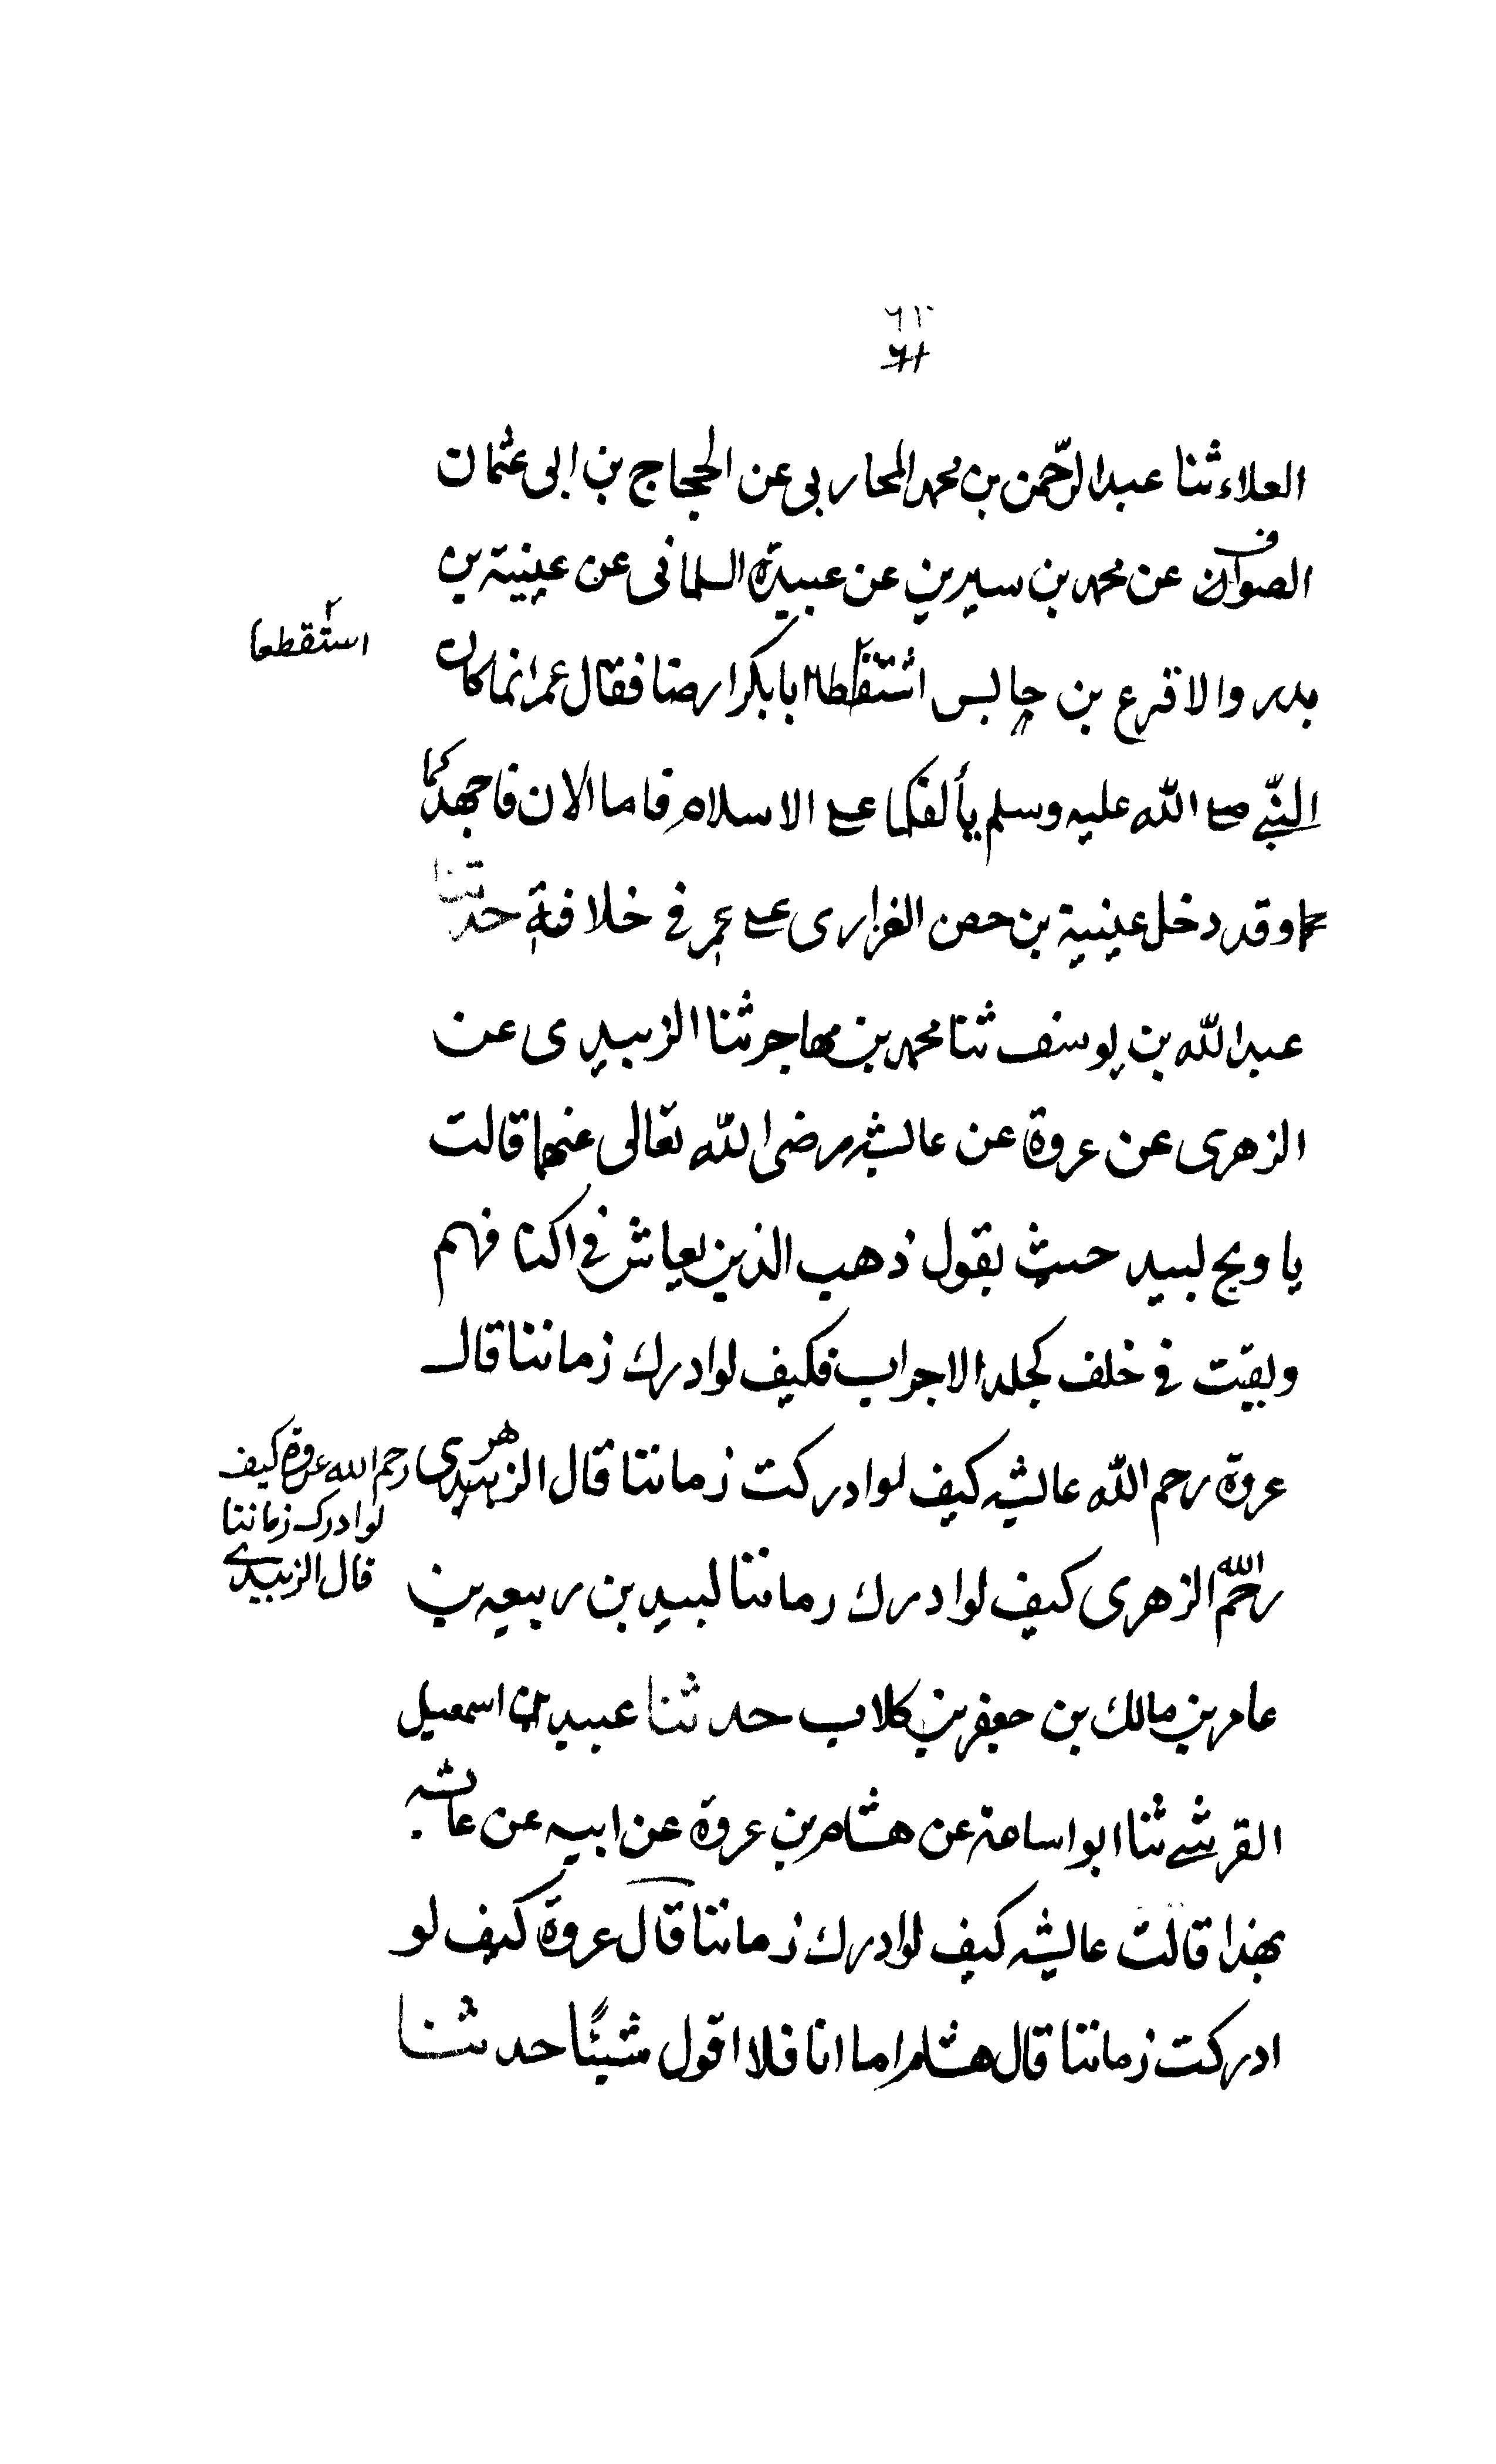 ٦٢
٦١
العلاء ثنا عبد الرّحمن بن محمد المحاربى عن الحجاج بن ابى عثمان
الصواف عن محمد بن سيرين عن عبيدة السلمانى عن عيينية بن
بدر والاقرع بن حابس استقطعا ابا بكر ارضا فقال عمر انما كان
استقطعا
النّبى صلى الله عليه وسلم يألفكما على الاسلام فاما الان فاجهدا
وقد دخل عيينية بن حصن الفزارى على عمر فى خلافته حدثنا
عبد الله بن يوسف ثنا محمد بن مهاجر ثنا الزبيدى عن
الزهرى عن عروة عن عائشه رضى الله تعالى عنها قالت
يا ويح لبيد حيث يقول ذهب الذين يعاش فى اكنافهم
وبقيت فى خلف كجلد الاجراب فكيف لو ادرك زماننا قال
عروة رحم الله عائشه كيف لو ادركت زماننا قال الزهرى
رحم الله عروة كيف
لو ادرك زماننا
قال الزبيدى
رحم الله الزهرى كيف لو ادرك زماننا لبيد بن ربيعه بن
عامر بن مالك بن جعفر بن كلاب حدثنا عبيد بن اسمعيل
القرشى ثنا ابو اسامة عن هشام بن عروة عن ابيه عن عائشه
بهذا قالت عائشه كيف لو ادرك زماننا قال عروة كيف لو
ادركت زماننا قال هشام اما انا فلا اقول شيئًا حدثنا